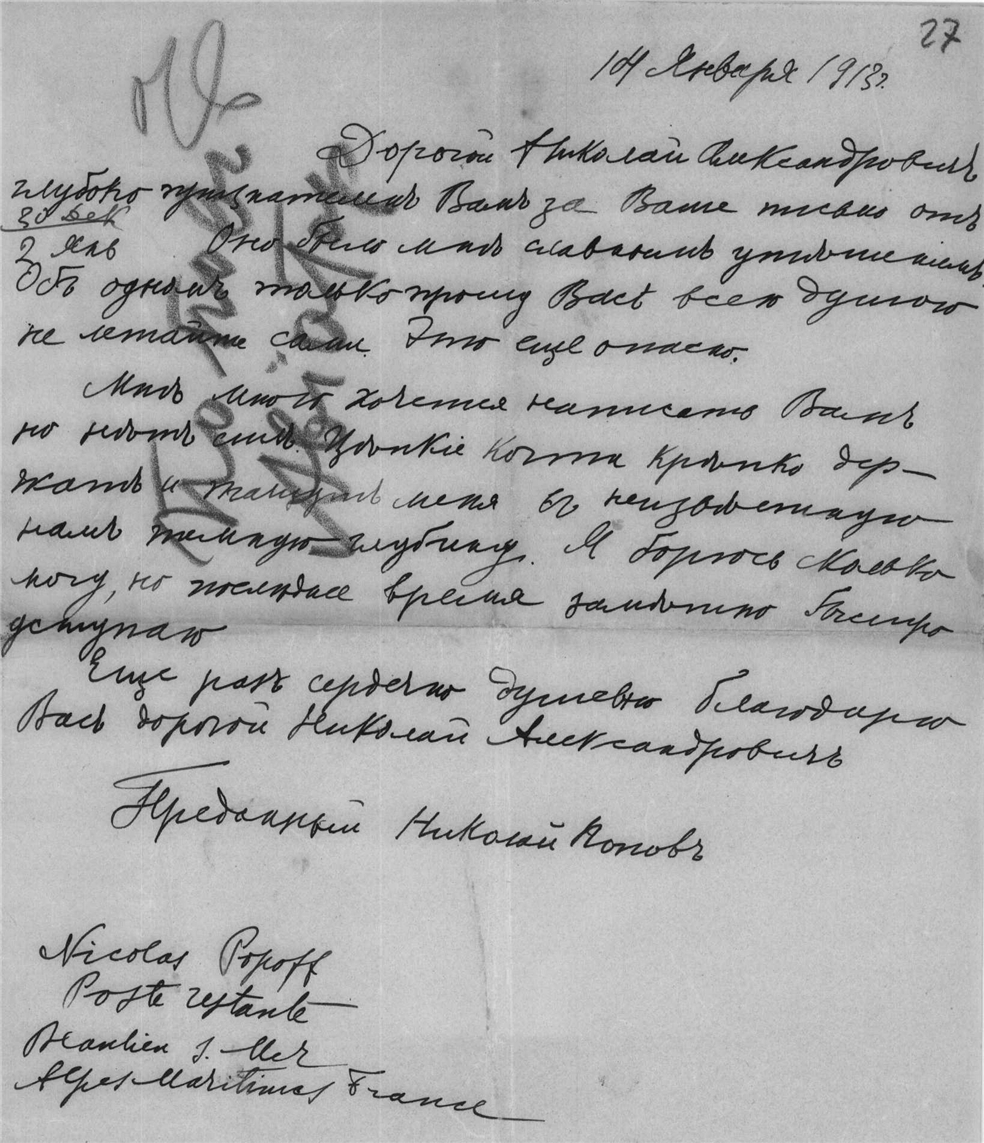 27
14 Января 1913г.
Дорогой Николай Александровичъ
глубоко признателенъ Вамъ за Ваше письмо отъ
30 дек
2 янв Оно было мнѣ славнымъ утѣшеніемъ.
Объ одномъ только прошу Васъ всею душою
не летайте сами. Это еще опасно.
Мнѣ много хочется написать Вамъ
но нѣтъ силъ. Цѣпкіе когти крѣпко дер-
жатъ и тащутъ меня въ неизвѣстную
намъ темную глубину. Я борюсь сколько
могу, но послѣднее время замѣтно быстро
уступаю
Еще разъ сердечно душевно благодарю
Васъ дорогой Николай Александровичъ
Преданный Николай Поповъ
Nicolas Popoff
Poste restante
Beaulieu s. Mer
Alpes Maritimes France